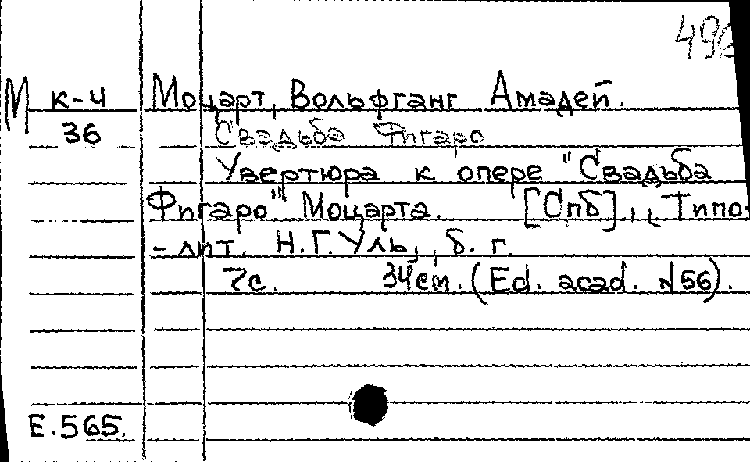 М к-4 Моцарт, Вольфганг Амадей.
36 Свадьба Фигаро
Увертюра к опере "Свадьба
Фигаро" Моцарта. [Спб],, Типо-
-лит. Н.Г.Уль,, б. г.
7с. 34см. (Ed. acad. №56).
Е.565.